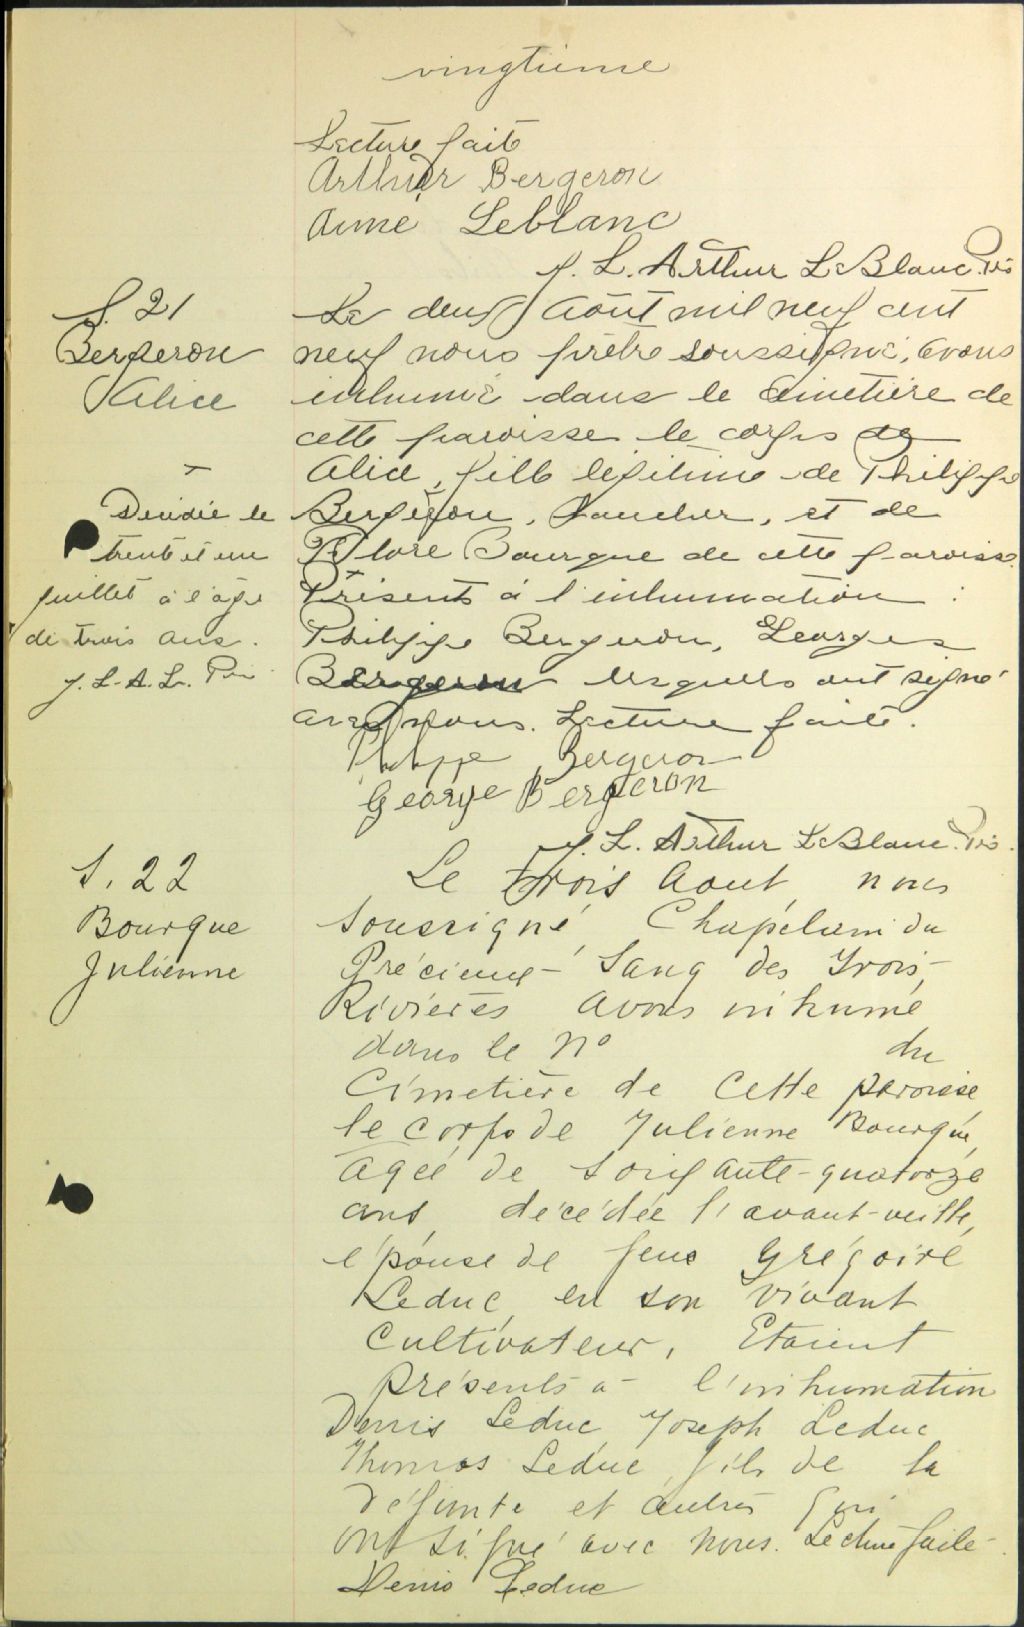 vingtième
Lecture faite
Arthur Bergeron
Aimé Leblanc
J. L. Arthur LeBlanc. Ptre
S. 21
Bergeron
Alice
Décédée le
trente et un
juillet à l'âge
de trois ans.
J. L. A. L. Ptre
Le deux Août mil neuf cent
neuf nous prêtre soussigné, avons
inhumé dans le Cimetière de
cette paroisse le corps de
Alice, fille légitime de Philippe
Bergeron, boucher, et de
Flore Bourque de cette paroisse.
Présents à l'inhumation :
Philippe Bergeron, Georges
Bergeron lesquels ont signé
avec nous. Lecture faite.
Philippe Bergeron
George Bergeron
J. L. Arthur LeBlanc. Ptre.
S. 22
Bourque
Julienne
Le trois Aout, nous
soussigné, Chapelain du
Précieux-Sang des Trois-
Rivières avons inhumé
dans le No du
Cimetière de cette paroisse
le corps de Julienne Bourque,
agée de soixante-quatorze
ans, décédée l'avant-veille,
épouse de feue Grégoire
Leduc, en son vivant
Cultivateur, Etaient
présents à l'inhumation
Denis Leduc, Joseph Leduc
Thomas Leduc, fils de la
défunte et autres qui
ont signé avec nous. Lecture faite.
Denis Leduc